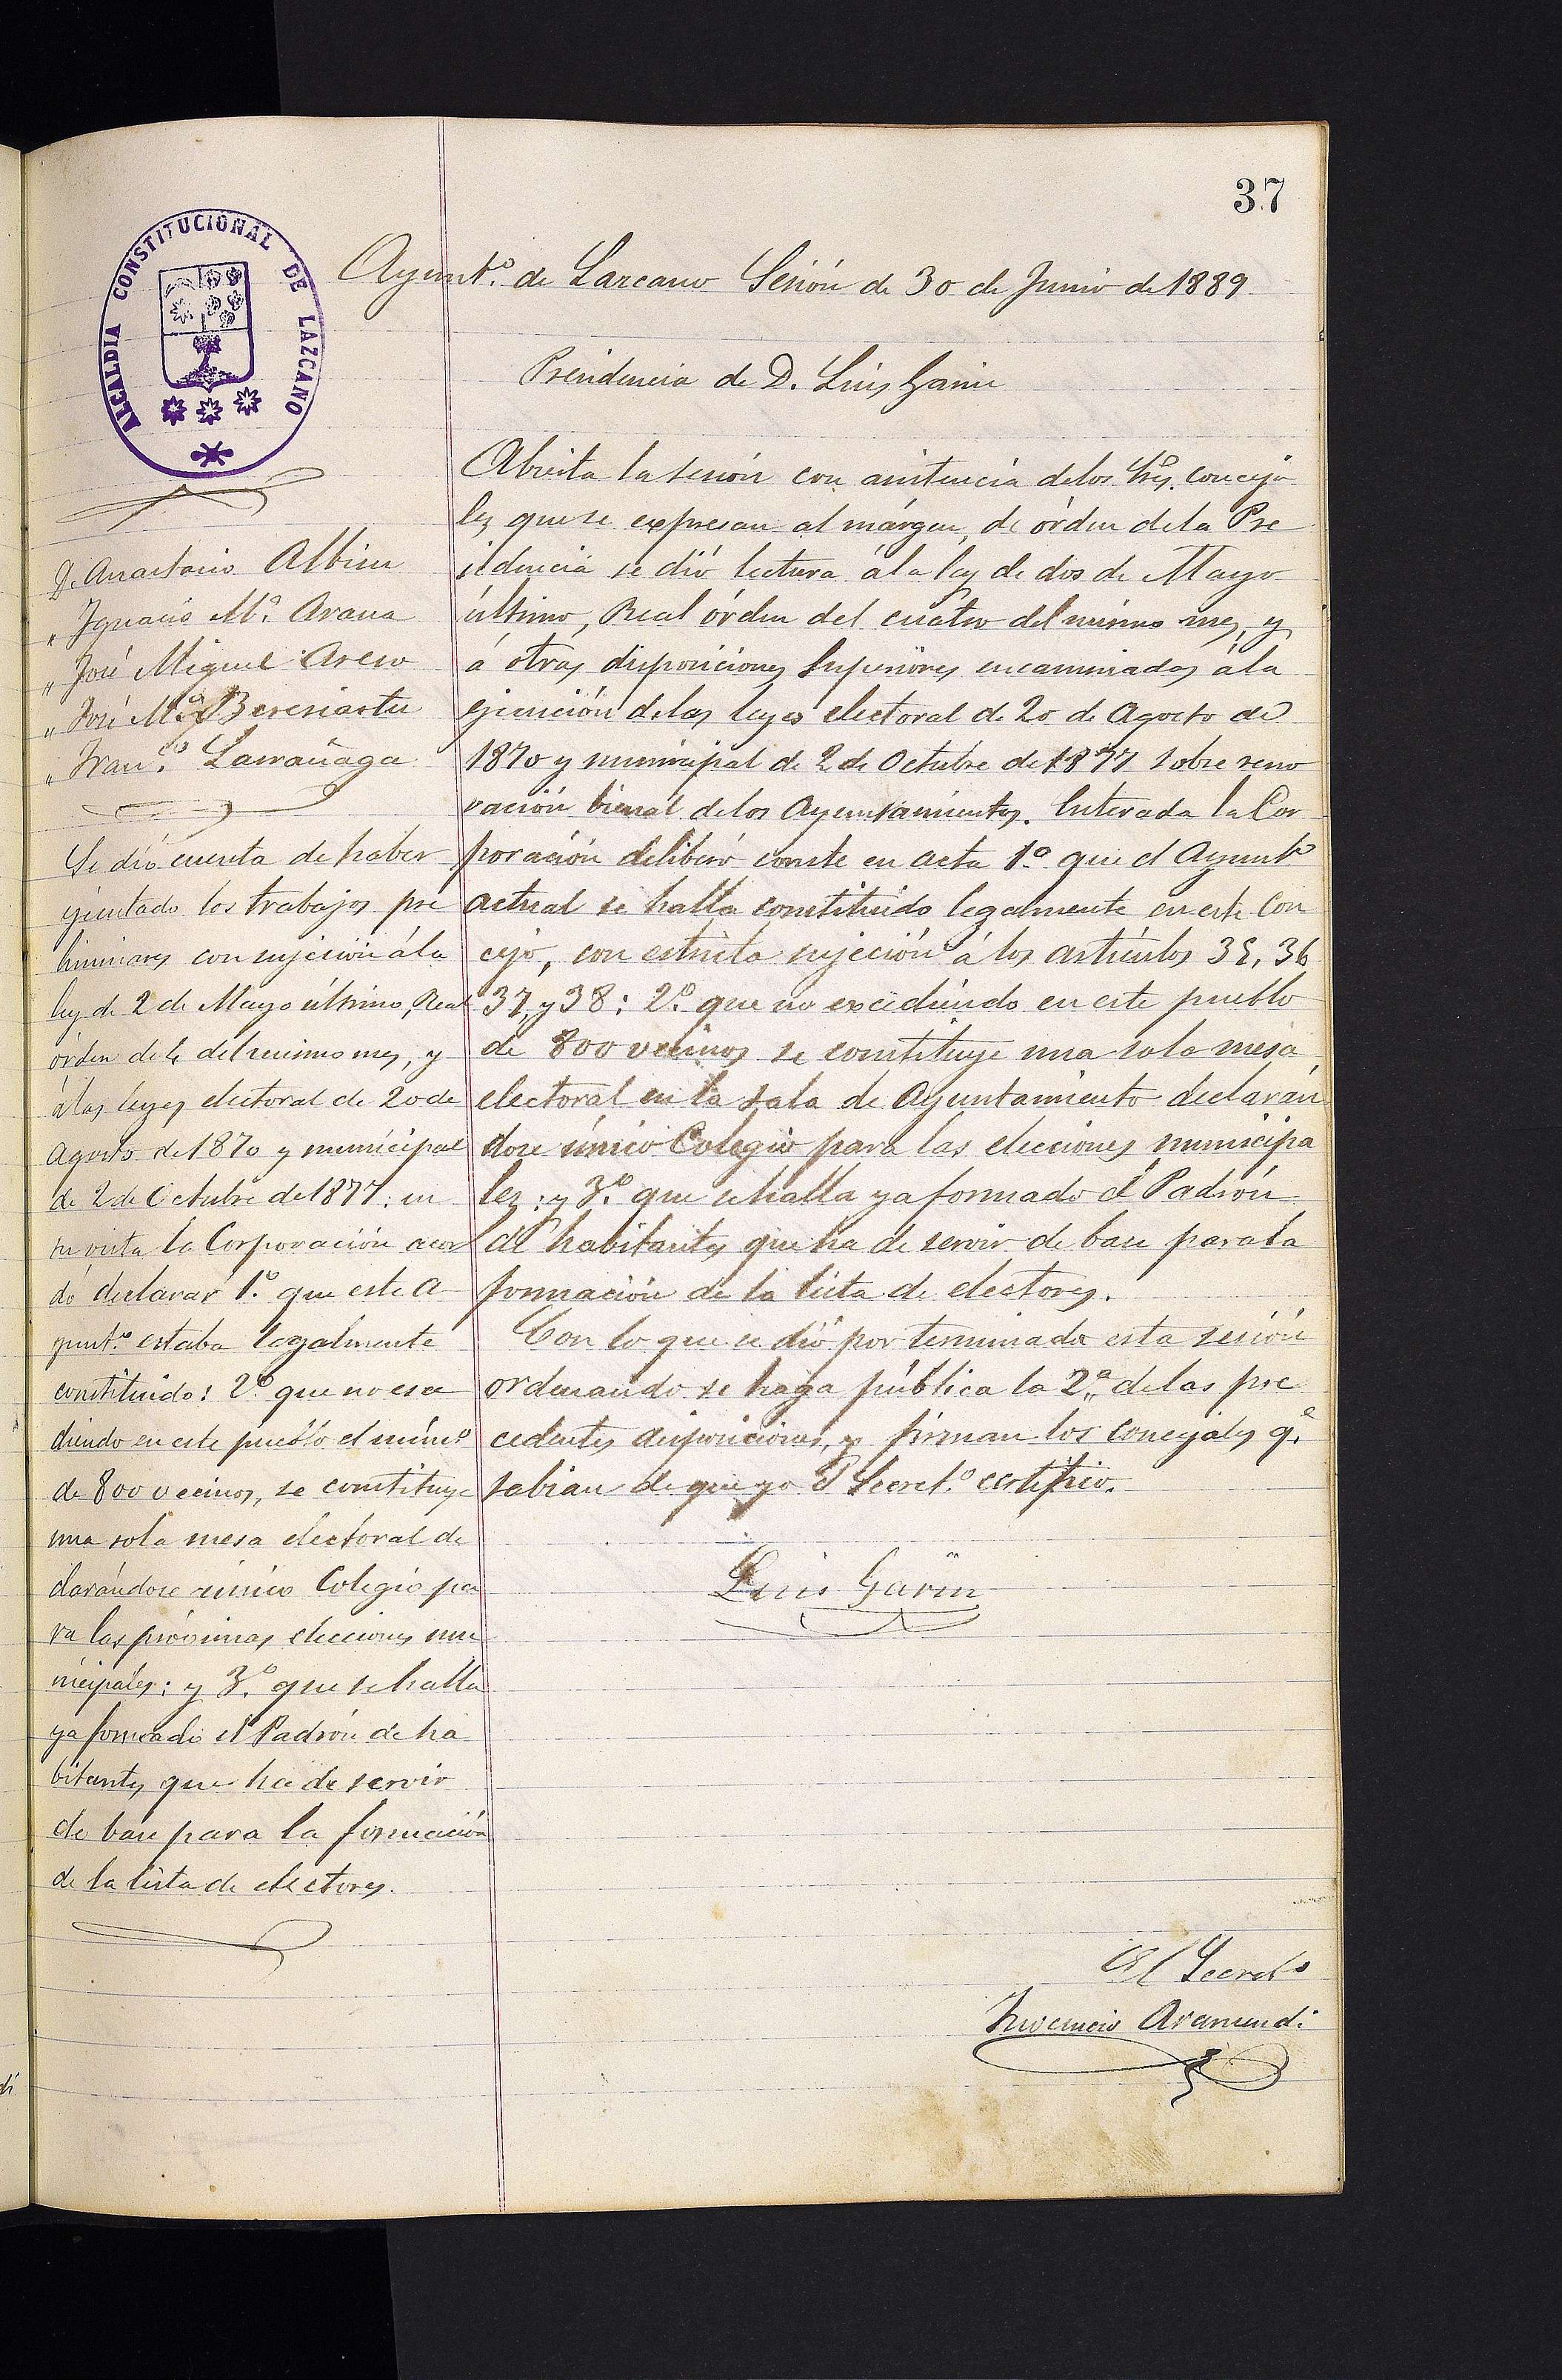 37
ALCALDIA CONSTITUCIONAL DE LAZCANO
Ayunt.º de Lazcano Sesión de 30 de Junio de 1889
Presidencia de D. Luis Garin
D. Anastasio Albisu
" Ignacio M.ª Arana
" José Miguel Aseso
" José M.ª Beresiartu
" Fran.co Larrañaga
Se dió cuenta de haber
ejecutado los trabajos pre
liminares con sujeción á la
ley de 2 de Mayo último, Real
órden de 4 del mismo mes, y
á las leyes electoral de 20 de
Agosto de 1870 y municipal
de 2 de Octubre de 1877: en
su vista la Corporación acor
dó declarar 1.º que este A
yunt.º estaba legalmente
constituido: 2.º que no exce
diendo en este pueblo el núm.º
de 800 vecinos, se constituye
una sola mesa electoral de
clarándose único Colegio pa
ra las próximas elecciones mu
nicipales: y 3.º que se halla
ya formado el Padrón de ha
bitantes que ha de servir
de base para la formación
de la lista de electores.
Abierta la sesión con asistencia de los Sres. conceja
les que se expresan al márgen, de órden de la Pre
sidencia se dió lectura á la ley de dos de Mayo
último, Real órden del cuatro del mismo mes, y
á otras disposiciones Superiores encaminadas á la
ejecución de las leyes electoral de 20 de Agosto de
1870 y municipal de 2 de Octubre de 1877 sobre reno
vación bienal de los Ayuntamientos. Enterada la Cor
poración deliberó conste en acta 1.º que el Ayunt.º
actual se halla constituido legalmente en este Con
cejo, con estricta sujeción á los artículos 35, 36
37, y 38: 2.º que no excediendo en este pueblo
de 800 vecinos se constituye una sola mesa
electoral en la sala de Ayuntamiento declarán
dose único Colegio para las elecciones municipa
les: y 3.º que se halla ya formado el Padrón
de habitantes que ha de servir de base para la
formación de la lista de electores.
Con lo que se dió por terminada esta sesión
ordenando se haga pública la 2.ª de las pre
cedentes disposiciones, y firman los concejales q.e
sabian de que yo el Secret.º certifico.
Luis Garin
El Secret.º
Inocencio Aramendi